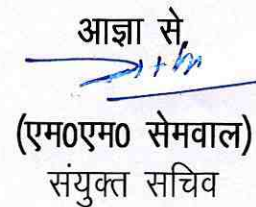 आज्ञा से,
(एम0एम0 सेमवाल)
संयुक्त सचिव